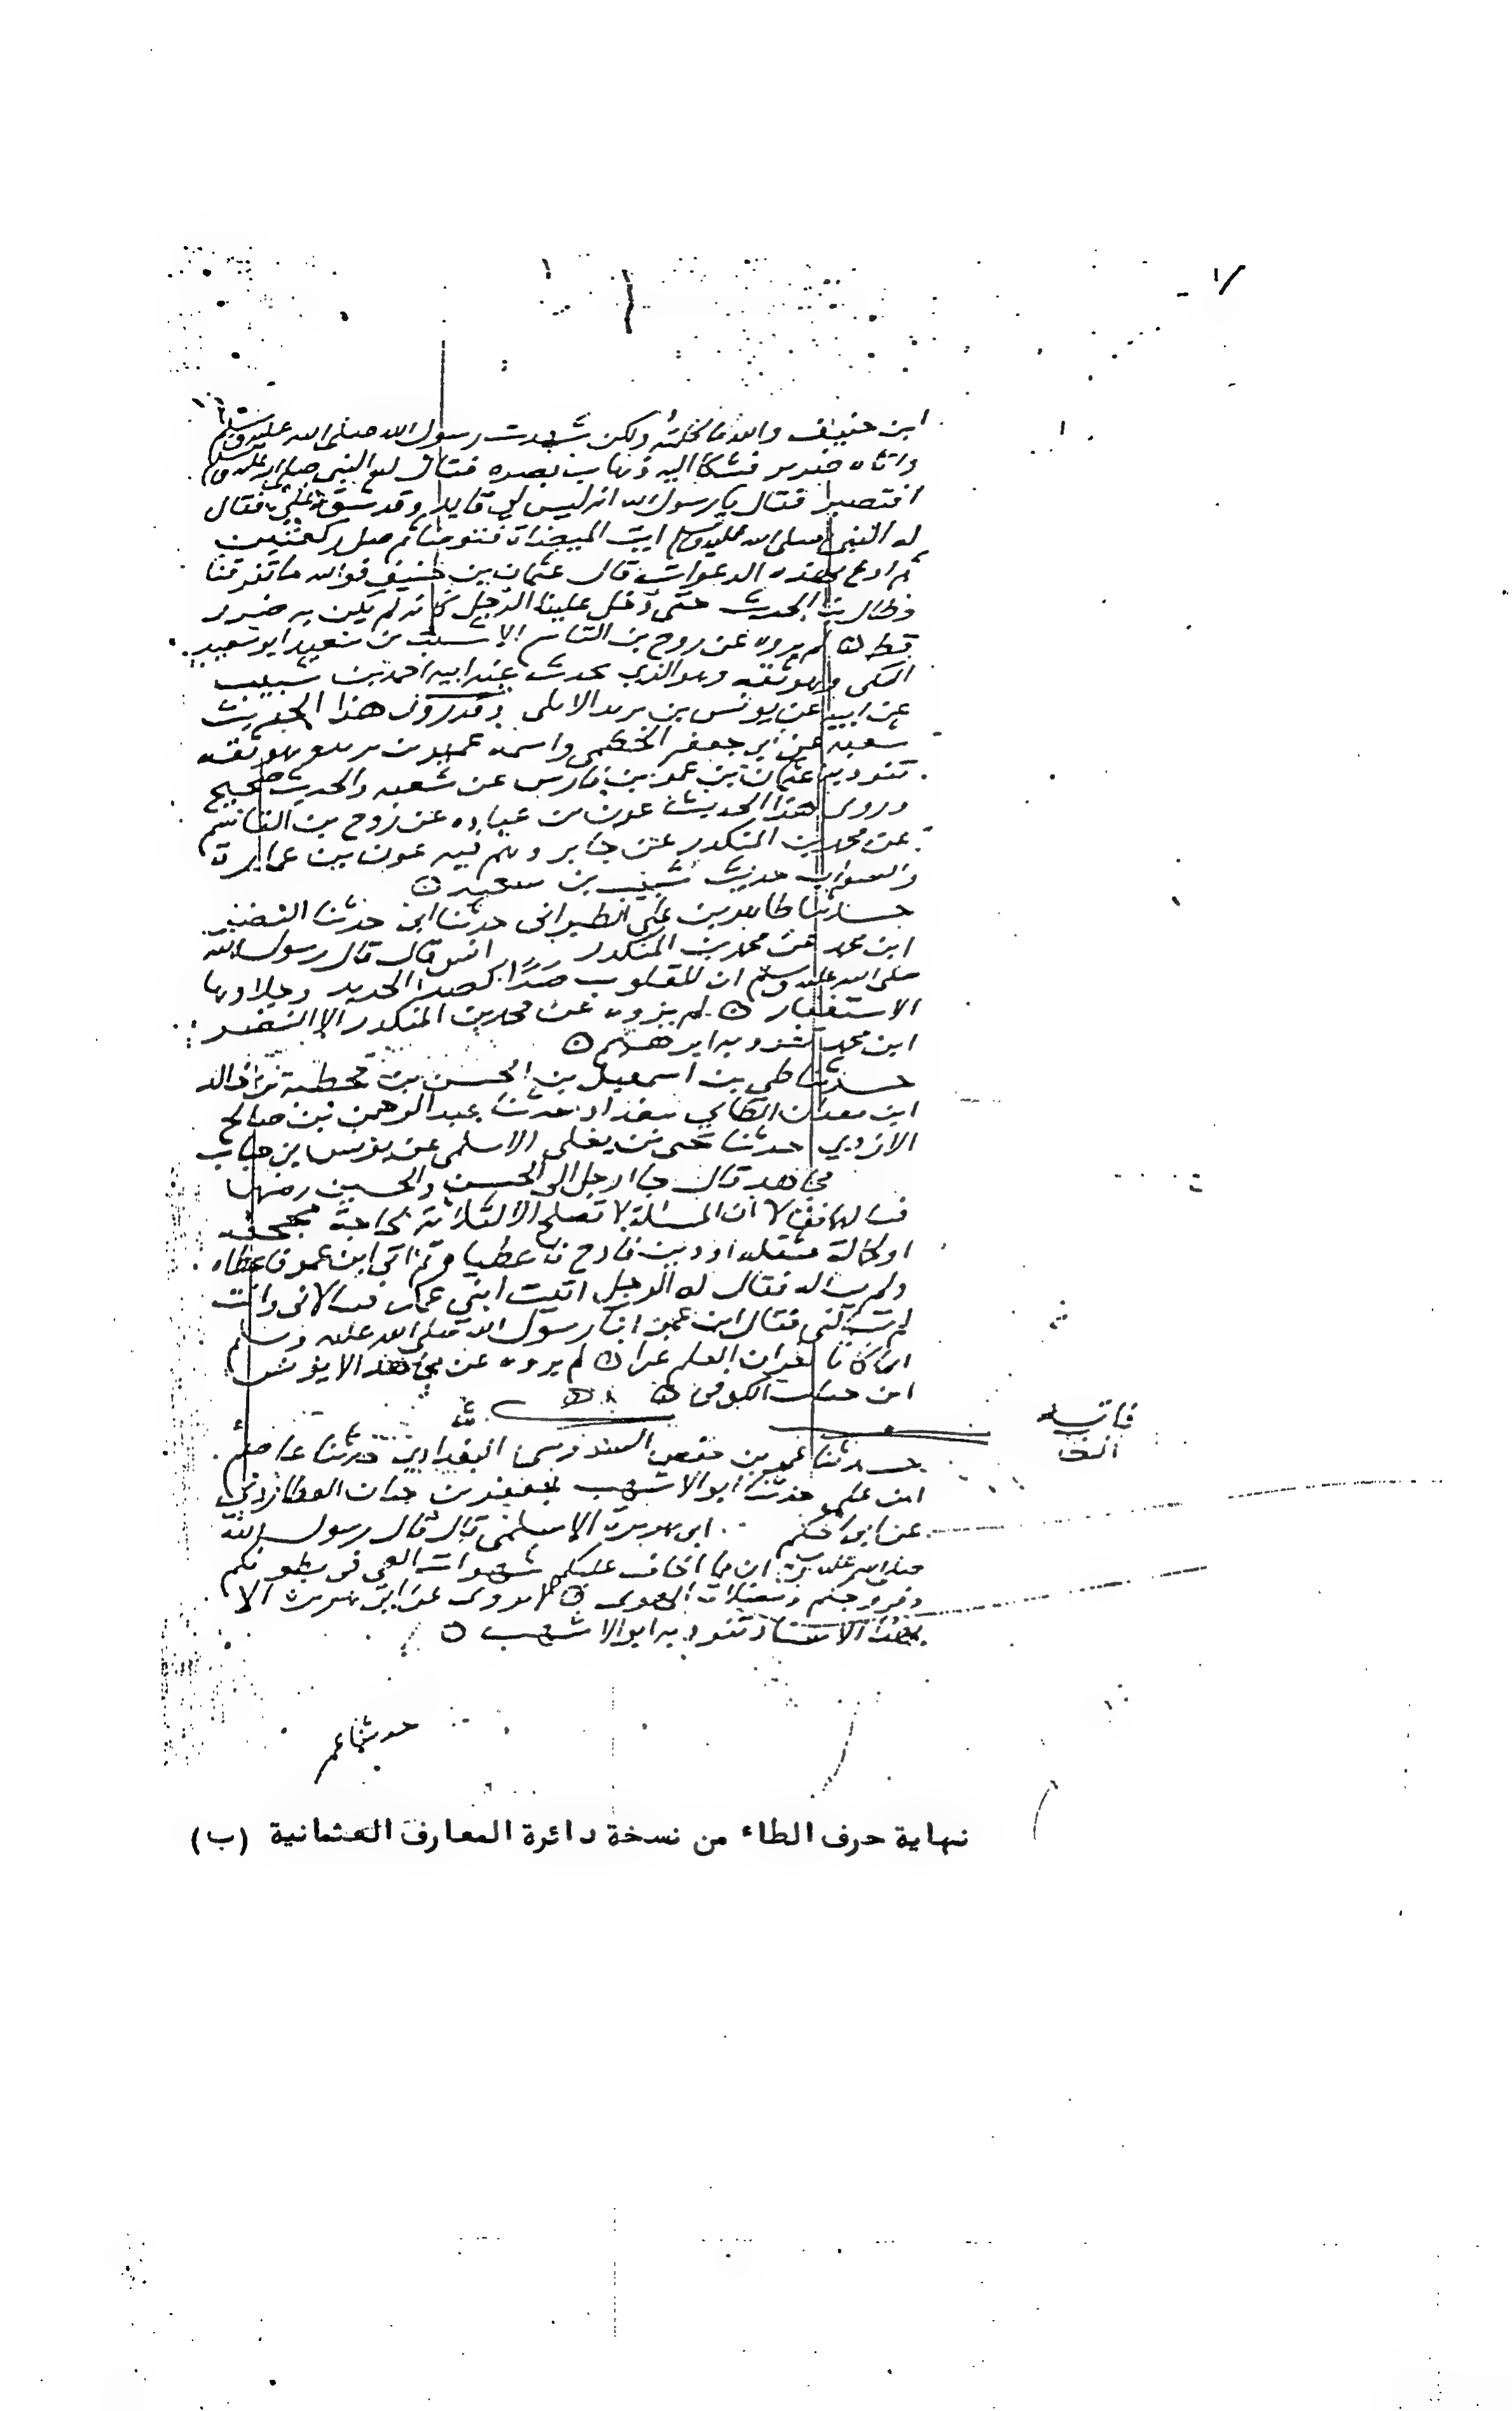 ابن حنيف والله ما كلمته ولكن شهدت رسول الله صلى الله عليه وسلم
واتاه ضرير فشكا اليه ذهاب بصره فقال له النبي صلى الله عليه وسلم
افتصبر فقال يا رسول الله انه ليس لي قايد وقد شق علي فقال
له النبي صلى الله عليه وسلم ايت الميضاة فتوضا ثم صل ركعتين
ثم ادع بهذه الدعوات قال عثمان بن حنيف فوالله ما تفرقنا
وطال بنا الحديث حتى دخل علينا الرجل كانه لم يكن به ضرر
قط لم يروه عن روح بن القاسم الا شبيب بن سعيد ابو سعيد
المكي وهو ثقه وهو الذي يحدث عنه ابنه احمد بن شبيب
عن ابيه عن يونس بن يزيد الايلي وقد روى هذا الحديث
شعبه عن ابي جعفر الخطمي واسمه عمير بن يزيد وهو ثقه
تفرد به عثمان بن عمر بن فارس عن شعبه والحديث صحيح
وروى هذا الحديث عون بن عماره عن روح بن القاسم
عن محمد بن المنكدر عن جابر وهم فيه عون بن عمارة
والصواب حديث شبيب بن سعيد
حدثنا طاهر بن علي الطبراني حدثنا ابي حدثنا النضر
ابن محمد عن محمد بن المنكدر انس قال قال رسول الله
صلى الله عليه وسلم ان للقلوب صدا كصدا الحديد وجلاوها
الاستغفار لم يروه عن محمد بن المنكدر الا النضر
ابن محمد تفرد به ابرهيم
حدثنا طي بن اسمعيل بن الحسن بن قحطبة بن خالد
ابن معدان الطاي ببغداد حدثنا عبد الرحمن بن صالح
الازدي حدثنا يحيى بن يعلى الاسلمي عن يونس بن خباب
مجاهد قال جا رجل الى الحسن والحسين رضهما
فسالهما فقالا ان المسئلة لا تصلح الا لثلاثة لحاجة مجحفه
او لحمالة مثقله او دين فادح فاعطياه ثم اتى ابن عمر فاعطاه
ولم يساله فقال له الرجل اتيت ابني عمك فسالاني وانت
لم تسالني فقال ابن عمر ابنا رسول الله صلى الله عليه وسلم
انما كانا يغران العلم غرا لم يروه عن مجاهد الا يونس
ابن خباب الكوفي
حدثنا عمر بن حفص السدوسي البغدادي حدثنا عاصم
ابن علي حدثنا ابو الاشهب جعفر بن حيان العطاردي
عن ابي الحكم ابي برزة الاسلمي قال قال رسول الله
صلى الله عليه ان مما اخاف عليكم شهوات الغي في بطونكم
وفروجكم ومضلات الهوى لا يروى عن ابي برزة الا
بهذا الاسناد تفرد به ابو الاشهب
حدثنا عمر
نهاية حرف الطاء من نسخة دائرة المعارف العثمانية (ب)